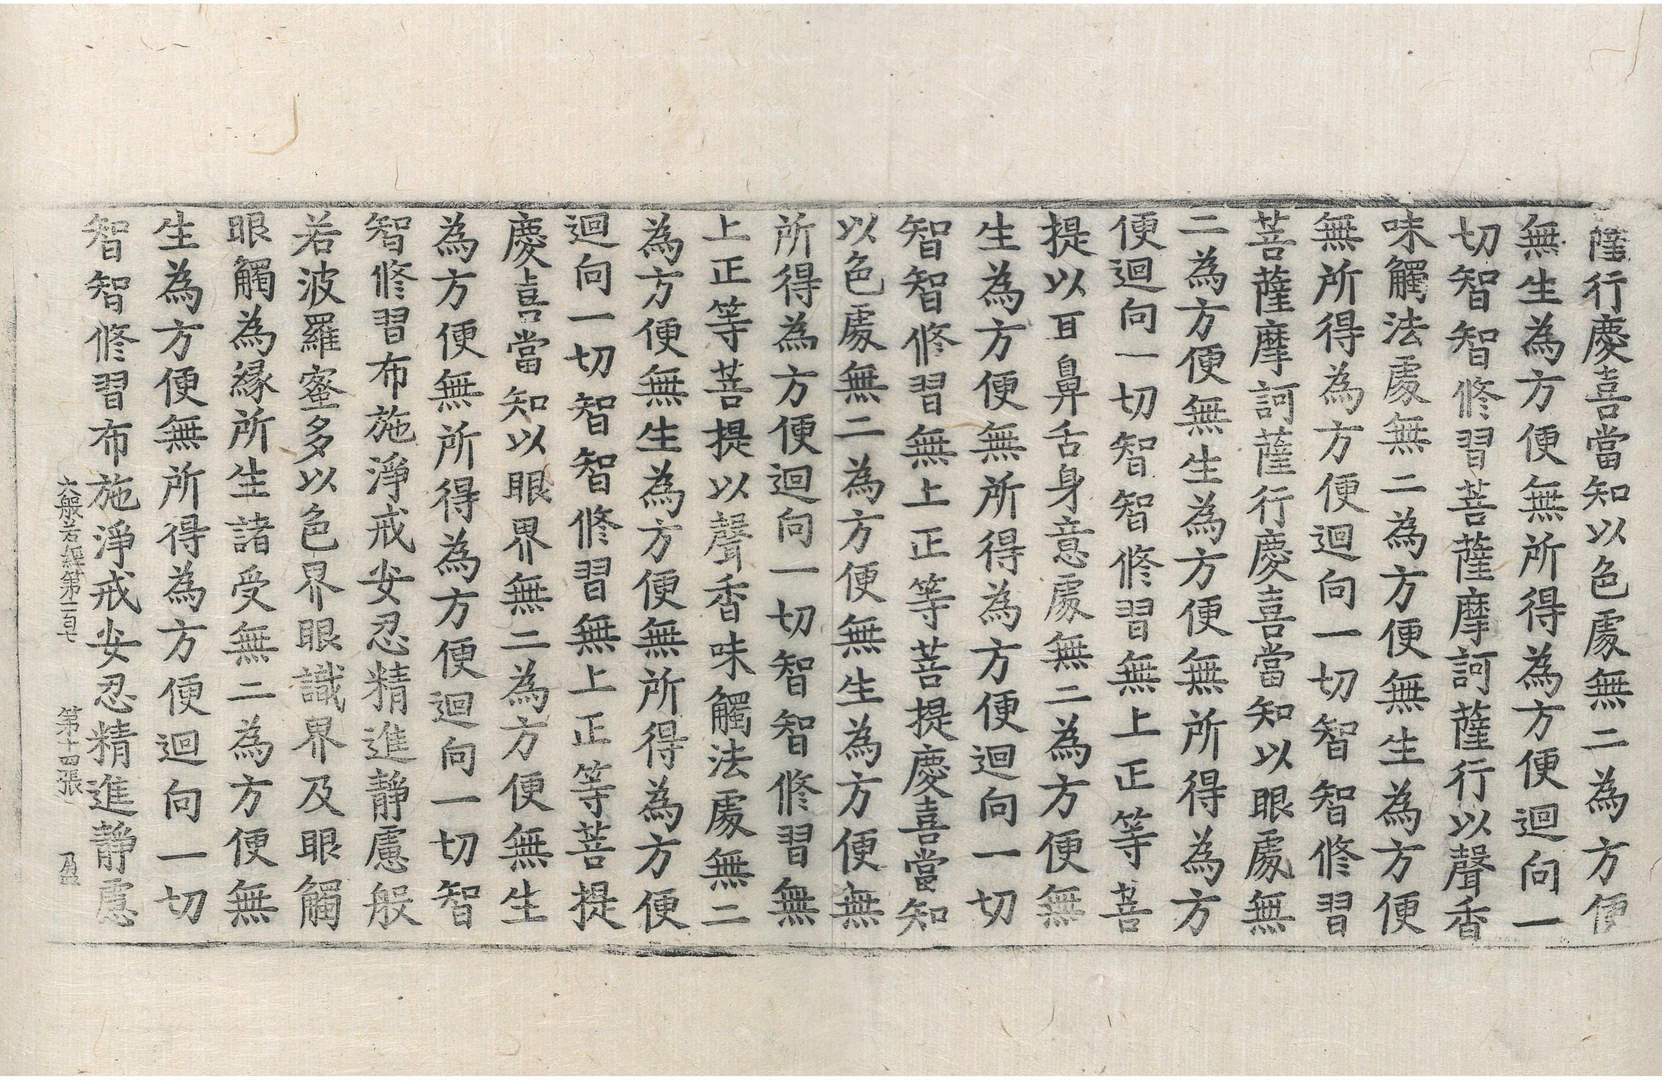 薩行慶喜當知以色處無二為方便
無生為方便無所得為方便迴向一
切智智修習菩薩摩訶薩行以聲香
味觸法處無二為方便無生為方便
無所得為方便迴向一切智智修習
菩薩摩訶薩行慶喜當知以眼處無
二為方便無生為方便無所得為方
便迴向一切智智修習無上正等菩
提以耳鼻舌身意處無二為方便無
生為方便無所得為方便迴向一切
智智修習無上正等菩提慶喜當知
以色處無二為方便無生為方便無
所得為方便迴向一切智智修習無
上正等菩提以聲香味觸法處無二
為方便無生為方便無所得為方便
迴向一切智智修習無上正等菩提
慶喜當知以眼界無二為方便無生
為方便無所得為方便迴向一切智
智修習布施淨戒安忍精進靜慮般
若波羅蜜多以色界眼識界及眼觸
眼觸為緣所生諸受無二為方便無
生為方便無所得為方便迴向一切
智智修習布施淨戒安忍精進靜慮
大般若經第一百七 第十四張 盈